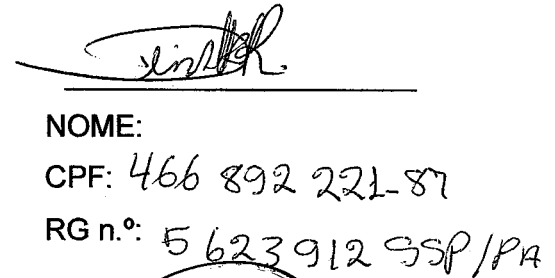 NOME:
CPF: 466 892 221-87
RG n.º: 5623912 SSP/PA